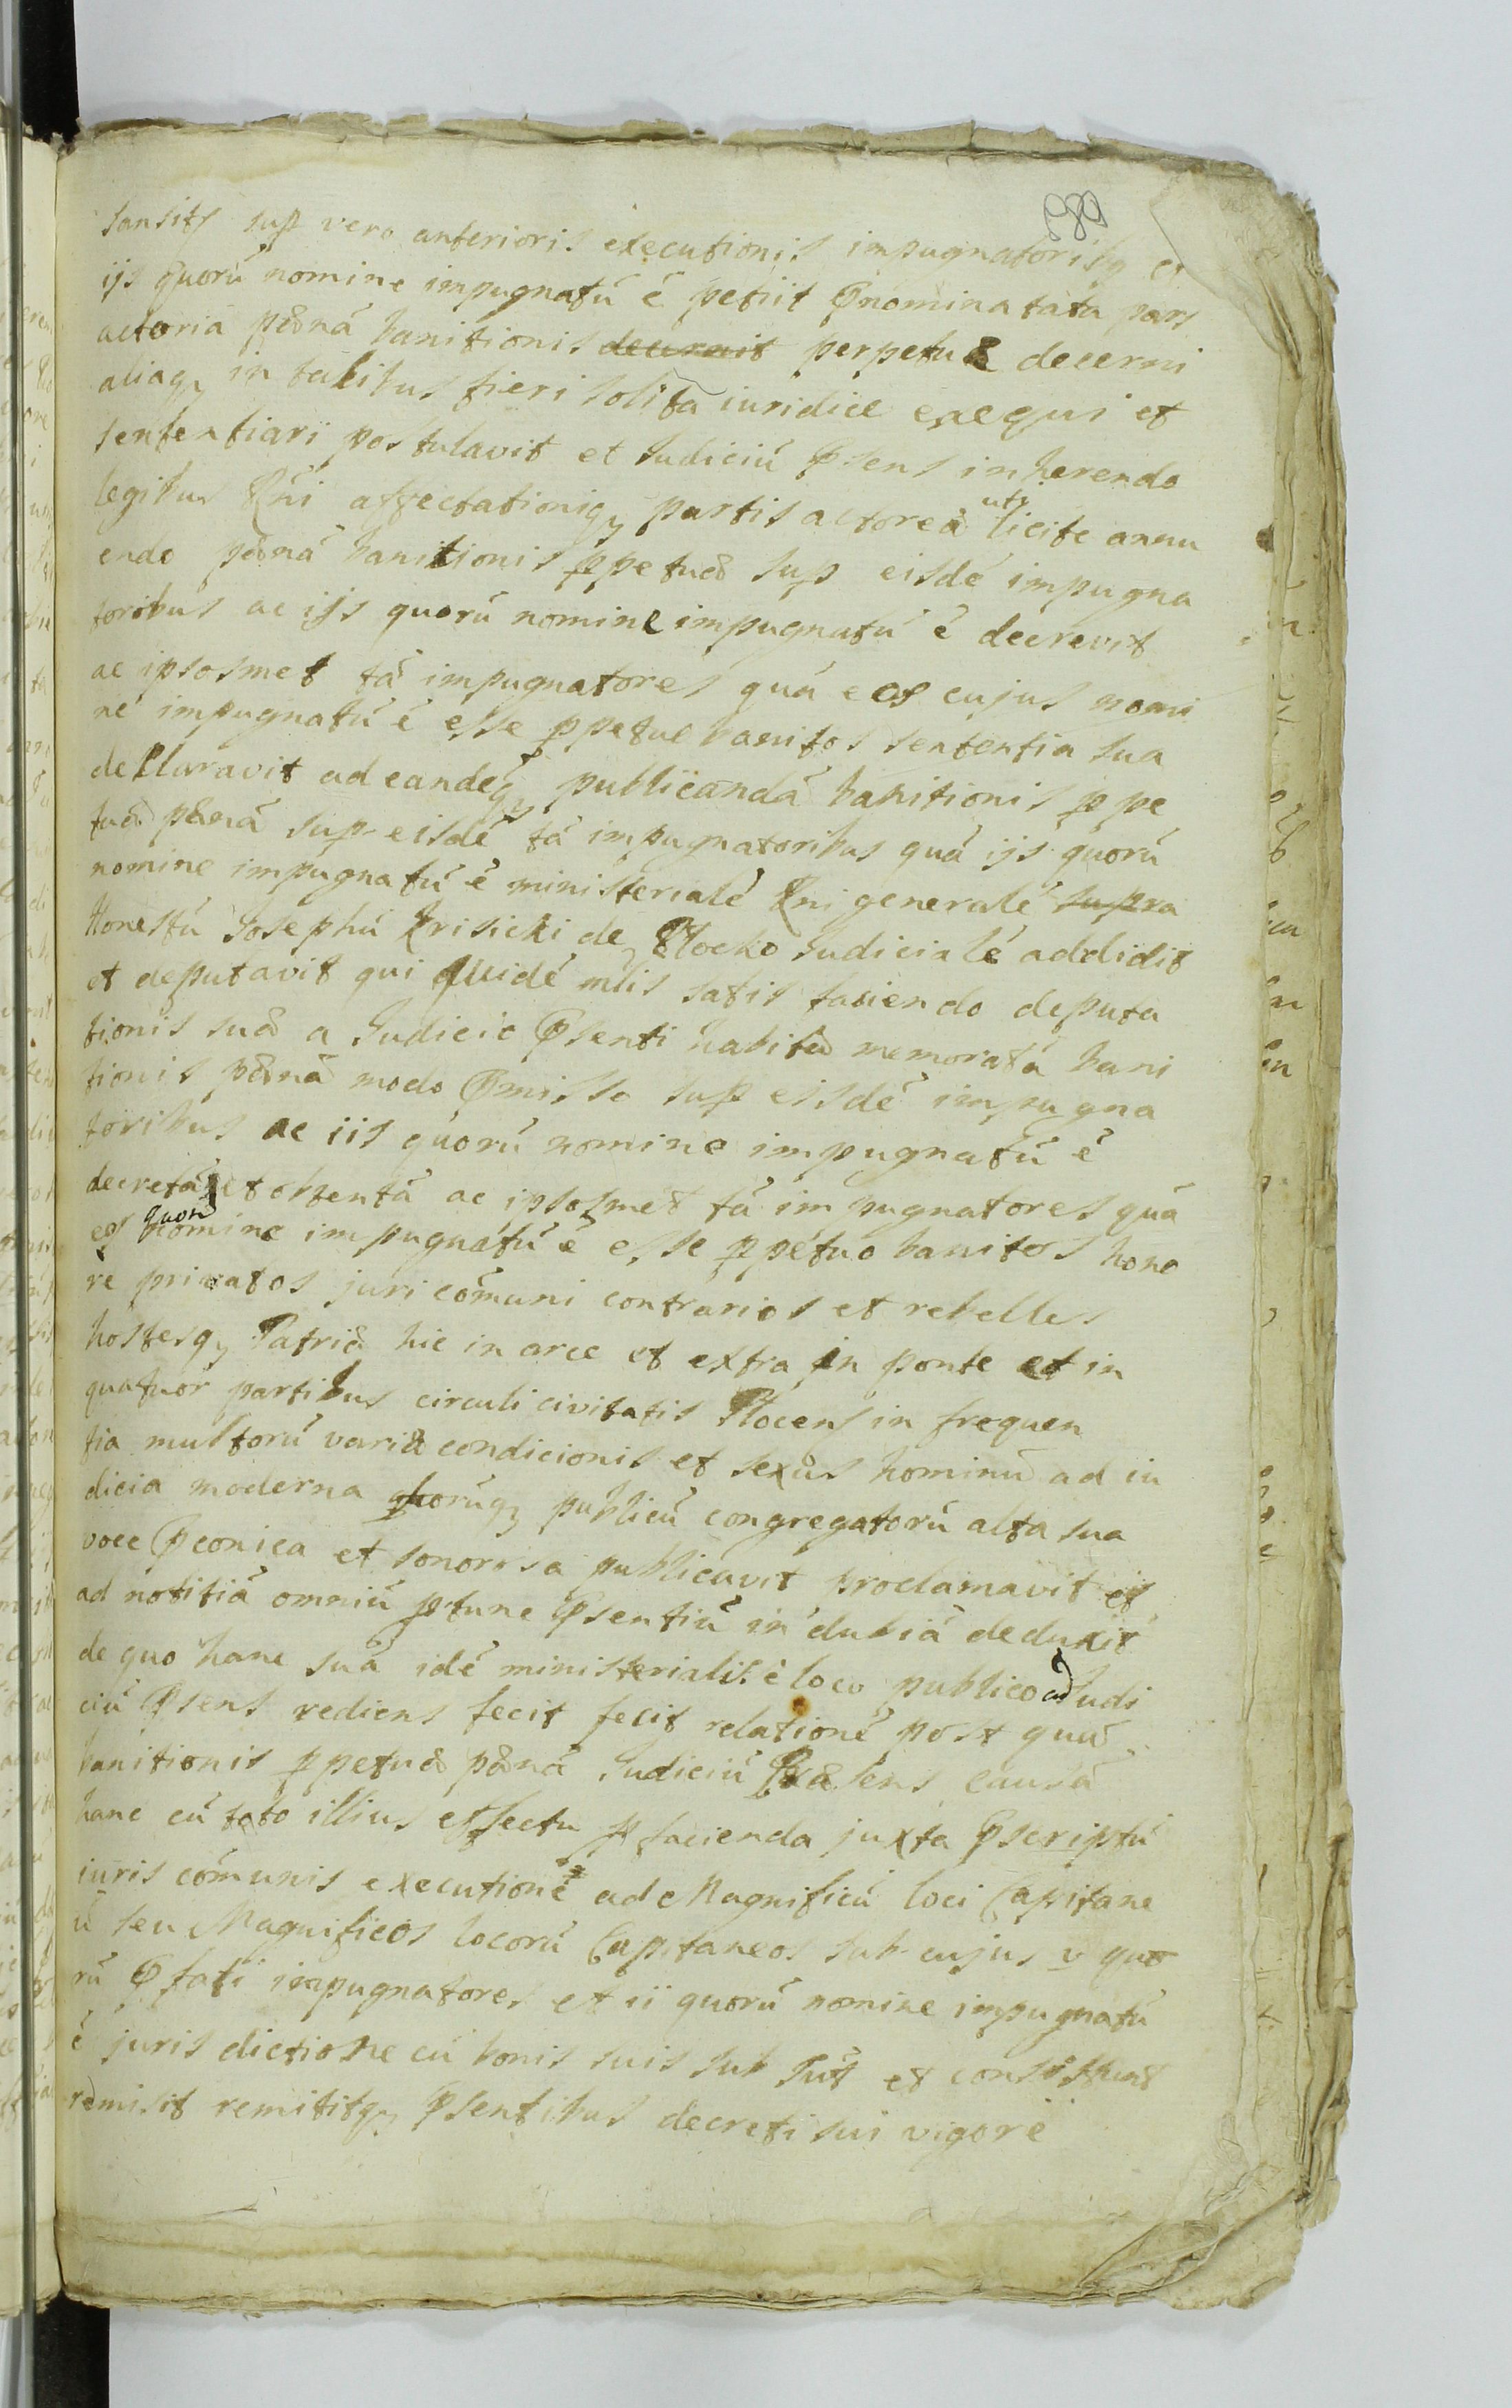 sansitq sup vero anterioris executionis impugnatoribq et
ijs quorú nomine impugnatú é petiit Pnominatata pars
actoria pœná banitionis decernit perpetuæ decerni
aliaq in talibus fieri solita iuridice exequi et
sententiari postulavit et Iudiciú Psens inherendo
legibus Rni affectationiq partis actoreæ uti licite annu
endo pœná banitionis ppetuæ sup eisdé impugna
toribus ac ijs quorú nomine impugnatú é decrevit
ac ipsosmet tá impugnatores quá eos cujus nomi
né impugnatú é esse ppetue banitos sententia sua
declaravit ad eandéq publicandá banitionis ppe
tuæ pœná sup eisdé tá impugnatoribus quá ijs quorú
nomine impugnatú é ministerialé Rni generalé supra
Honestú Josephú Krisicki de Plocko Iudicialé addidit
et deputavit qui quidé mlis satis faciendo deputa
tionis suæ a Iudicio Psenti habitæ memoratá bani
tionis pœná modo Pmisso sup eisdé impugna
toribus ac iis quorú nomine impugnatú é
decretá et obtentá ac ipsosmet tá impugnatores quá
eos quorú nomine impugnatú é esse ppetuo banitos hono
re privatos juri cómuni contrarios et rebelles
hostesq Patriæ hic in arce et extra in ponte et in
quatuor partibus circuli civitatis Plocens in frequen
tia multorú variæ condicionis et sexus hominú ad iu
dicia moderna horúq publicú congregatorú alta sua
voce Pconica et sonorosa publicavit proclamavit et
ad notitiá omniú ptunc Psentiú indubiá deduxit
de quo hanc suá idé ministerialis é loco publico ad Iudi
ciú Psens rediens fecit fecit relationé post quá
banitionis ppetuæ pœná Iudiciú Præsens causá
hanc cú toto illius effectu p facienda juxta Pscriptú
iuris cómunis executioné ad Magnificú loci Capitane
ú seu Magnificos locorú Capitaneos sub cujus v quo
rú Pfati impugnatores et ii quorú nomine impugnatú
é juris dictione cú bonis suis sub sút et consistunt
remisit remititq Psentibus decreti sui vigore